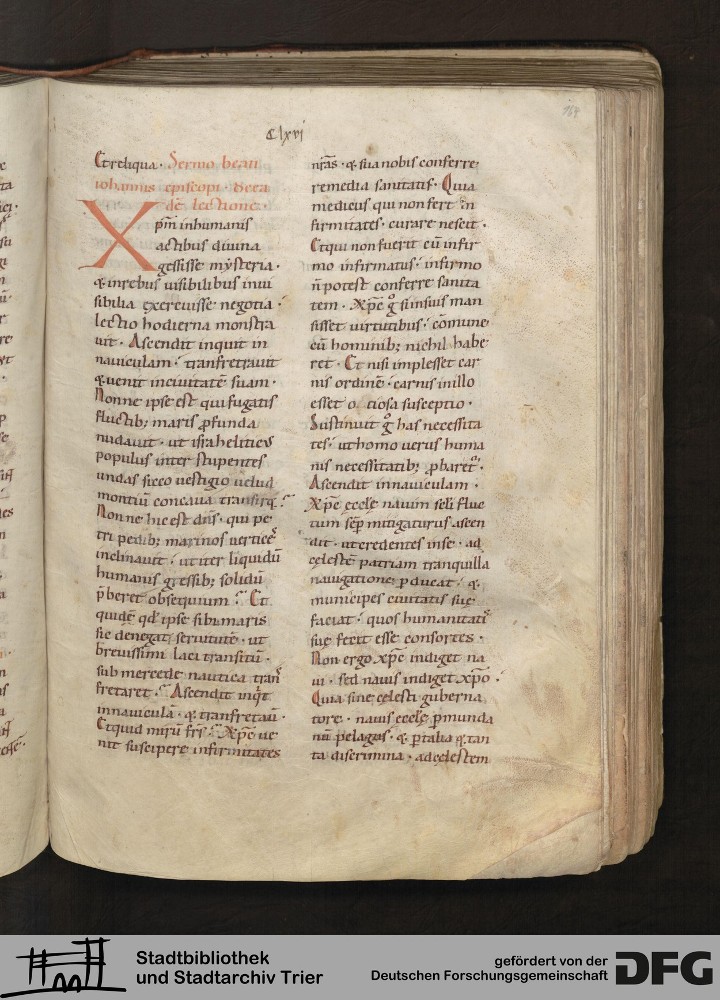 Clxvi
164
Et reliqua · Sermo beati
iohannis episcopi · de ea
dē lectione ·
Xpm̄ in humanis
actibus diuina
gessisse mysteria ·
& in rebus uisibilibus inui
sibilia exercuisse negotia ·
lectio hodierna monstra
uit · Ascendit inquit in
nauiculam · transfretauit
& uenit in ciuitatē suam ·
Nonne ipse est qui fugatis
fluctib; maris ꝓfunda
nudauit · ut israheliticus
populus inter stupentes
undas sicco uestigio uelud
montiū concaua transir&;
Nonne hic est dn̄s · qui pe
tri pedib; marinos uertices
inclinauit · ut iter liquidū
humanis gressib; solidū
p̄beret obsequium · Et
quidē qđ ipse sibi maris
sic denegat seruitutē · ut
breuissimi laci transitū ·
sub mercede nautica tran
fretaret · Ascendit inq̇t
in nauiculā · & transfretau ·
Et quid mirū frs̄ · Xp̄c ue
nit suscipere infirmitates
nr̄as · & sua nobis conferre
remedia sanitatis · Quia
medicus qui non fert in
firmitates · curare nescit ·
Et qui non fuerit cū infir
mo infirmatus · infirmo
n̄ potest conferre sanita
tem · Xp̄c gͦ si in suis man
sisset uirtutibus · cōmune
cū hominib; nichil habe
ret · Et nisi implesset car
nis ordinē · carnis in illo
esset o ciosa susceptio ·
Sustinuit gͦ has necessita
tes · ut homo uerus huma
nis necessitatib; ꝓbaret ·
Ascendit in nauiculam ·
Xp̄c eccłe nauim sc̄li fluc
tum sēp mitigaturus ascen
dit · ut credentes in se · ad
celestē patriam tranquilla
nauigatione ꝑducat · &
municipes ciuitatis suę
faciat · quos humanitatis
suę fecit esse consortes ·
Non ergo xp̄c indiget na
ui · sed nauis indiget xp̄o ·
Quia sine celesti guberna
tore · nauis eccłę ꝑ munda
nū pelagus · & ꝑ talia & tan
ta discrimina · ad celestem
Stadtbibliothek
und Stadtarchiv Trier
gefördert von der
Deutschen Forschungsgemeinschaft
DFG